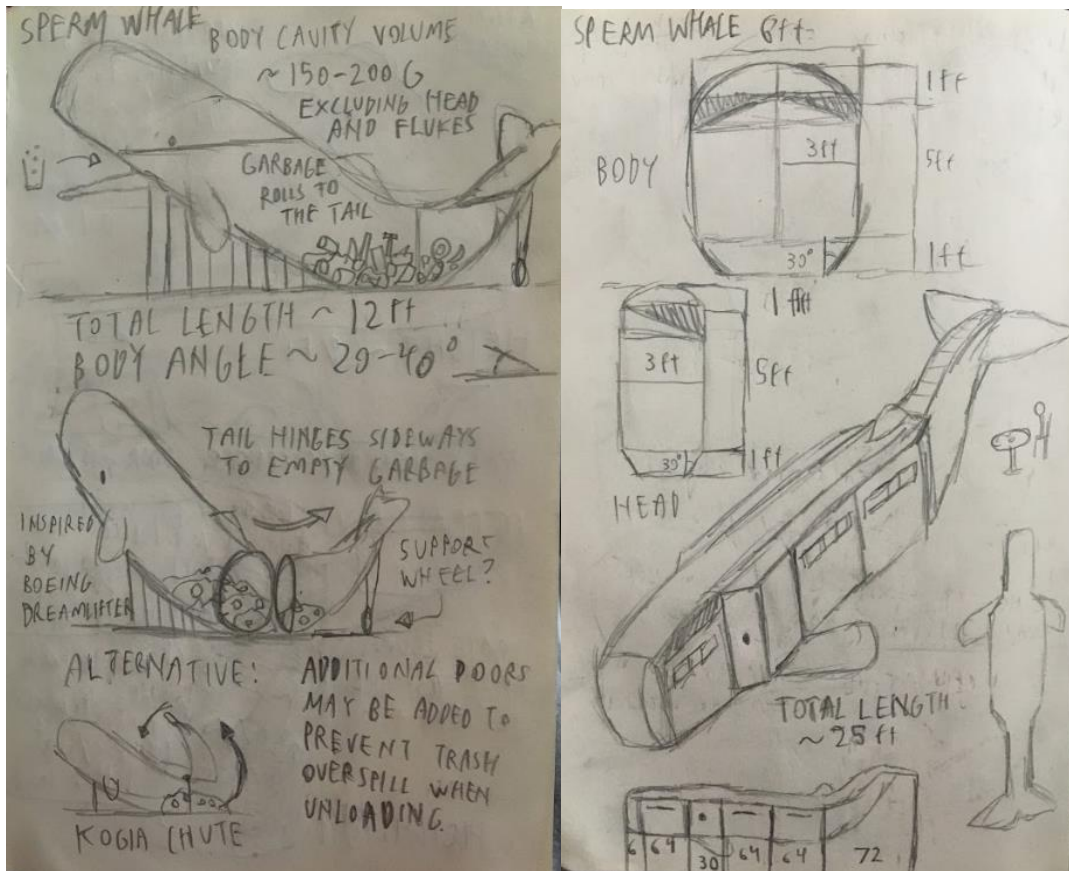 SPERM WHALE
BODY CAVITY VOLUME
~ 150-200 G
EXCLUDING HEAD
AND FLUKES
GARBAGE
ROLLS TO
THE TAIL
TOTAL LENGTH ~ 12 ft
BODY ANGLE ~ 20-40°
TAIL HINGES SIDEWAYS
TO EMPTY GARBAGE
INSPIRED
BY
BOEING
DREAMLIFTER
SUPPORT
WHEEL?
ALTERNATIVE:
KOGIA CHUTE
ADDITIONAL DOORS
MAY BE ADDED TO
PREVENT TRASH
OVERSPILL WHEN
UNLOADING.
SPERM WHALE 6ft
1ft
BODY
3ft
5ft
30°
1ft
1 ft
3ft
5ft
30°
1ft
HEAD
TOTAL LENGTH
~ 25 ft
6 64 30 64 64 72